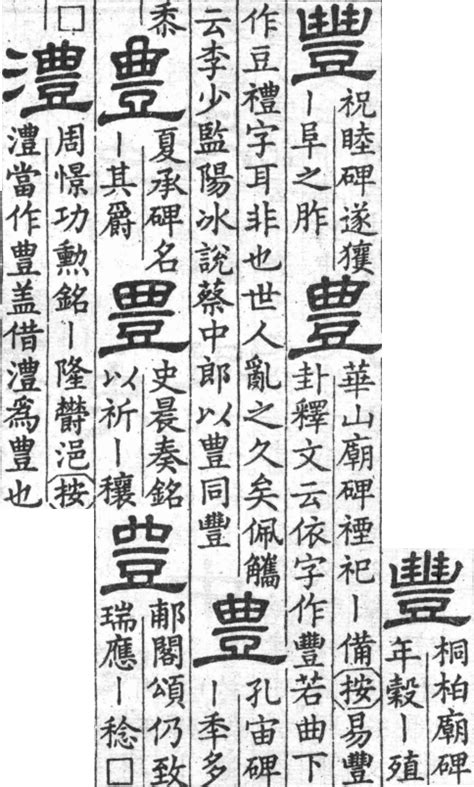 豐
桐柏廟碑
年穀丨殖
豐
祝睦碑遂獲
丨阜之胙
豊
華山廟碑禋祀丨備按易豐
卦釋文云依字作豐若曲下
作豆禮字耳非也世人亂之久矣佩觿
云李少監陽冰說蔡中郎以豊同豐
豊
孔宙碑
丨秊多
黍
豊
夏承碑名
丨其爵
豊
史晨奏銘
以祈丨穰
豊
郙閣頌仍致
瑞應丨稔□
□
澧
周憬功勳銘丨隆欎浥按
澧當作豊盖借澧爲豊也